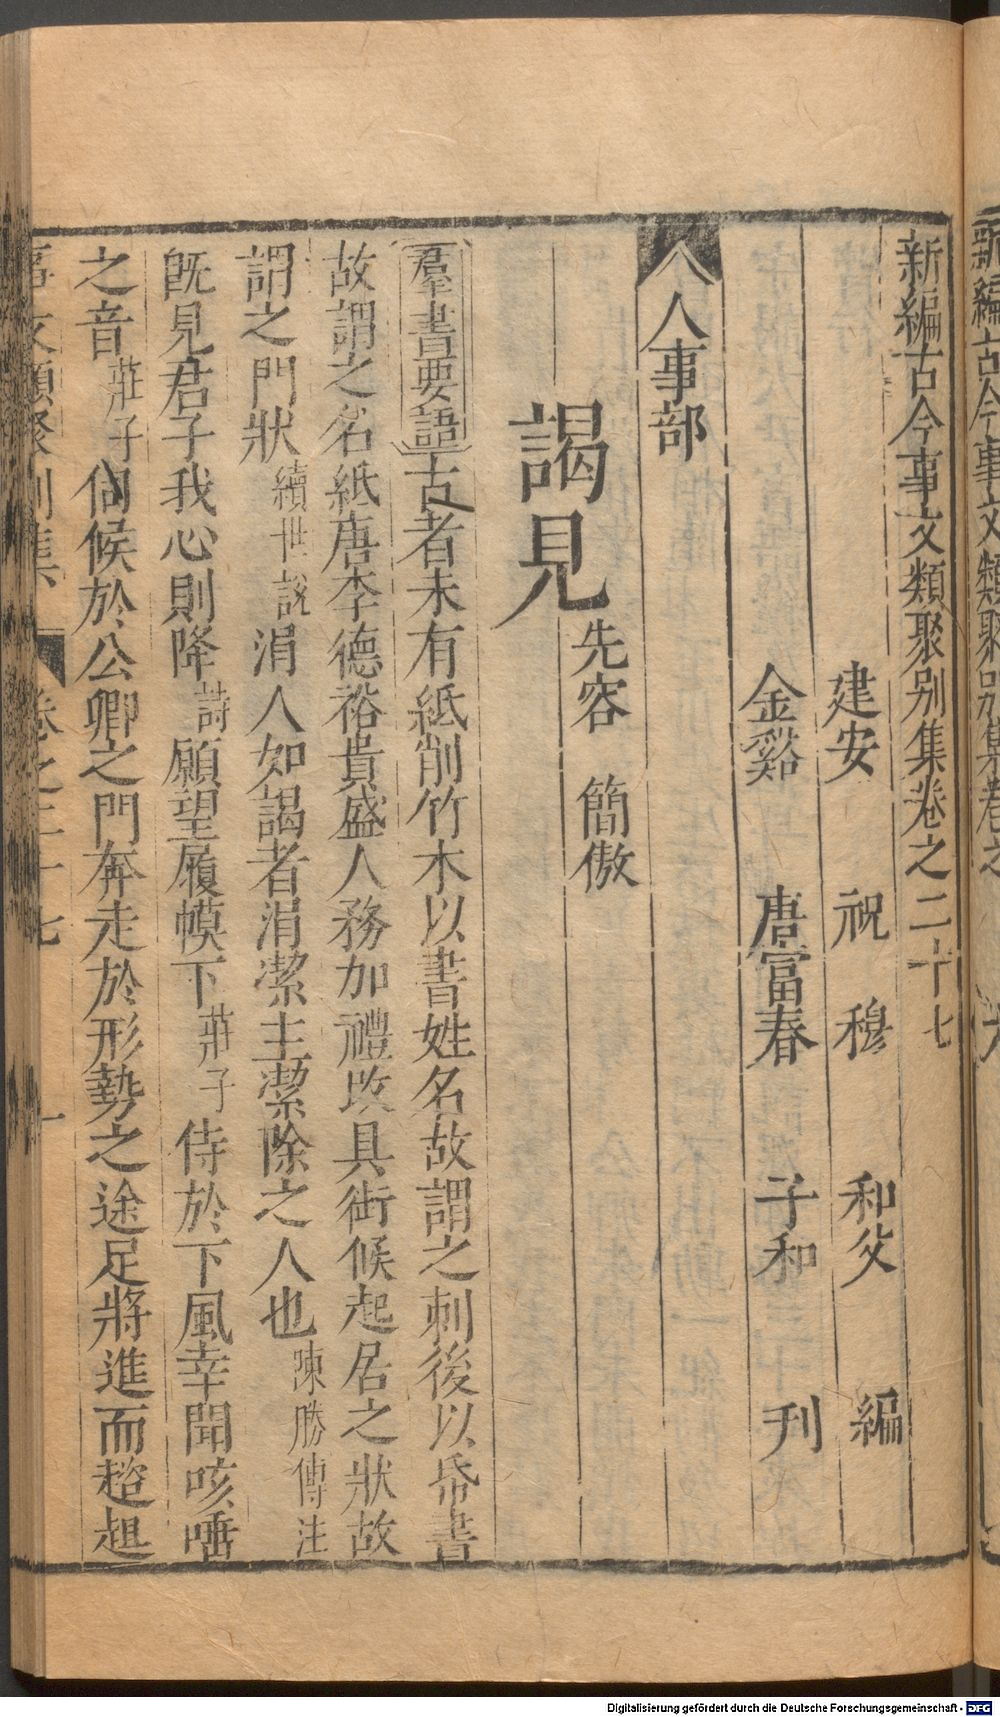 新編古今事文類聚别集卷之二十七
建安 祝 穆 和父 編
金谿 唐富春 子和 刋
人事部
謁見 先容 簡傲
羣書要語 古者未有紙削竹木以書姓名故謂之刺後以帋書
故謂之名紙唐李德裕貴盛人務加禮改具銜候起居之狀故
謂之門狀續世說涓人如謁者涓潔主潔除之人也陳勝傳注
旣見君子我心則降詩願望履幙下莊子侍於下風幸聞咳唾
之音莊子伺候於公卿之門奔走於形勢之途足將進而趦趄
事文類聚别集 卷之二十七 一
新編古今事文類聚别集卷之
Digitalisierung gefördert durch die Deutsche Forschungsgemeinschaft - DFG